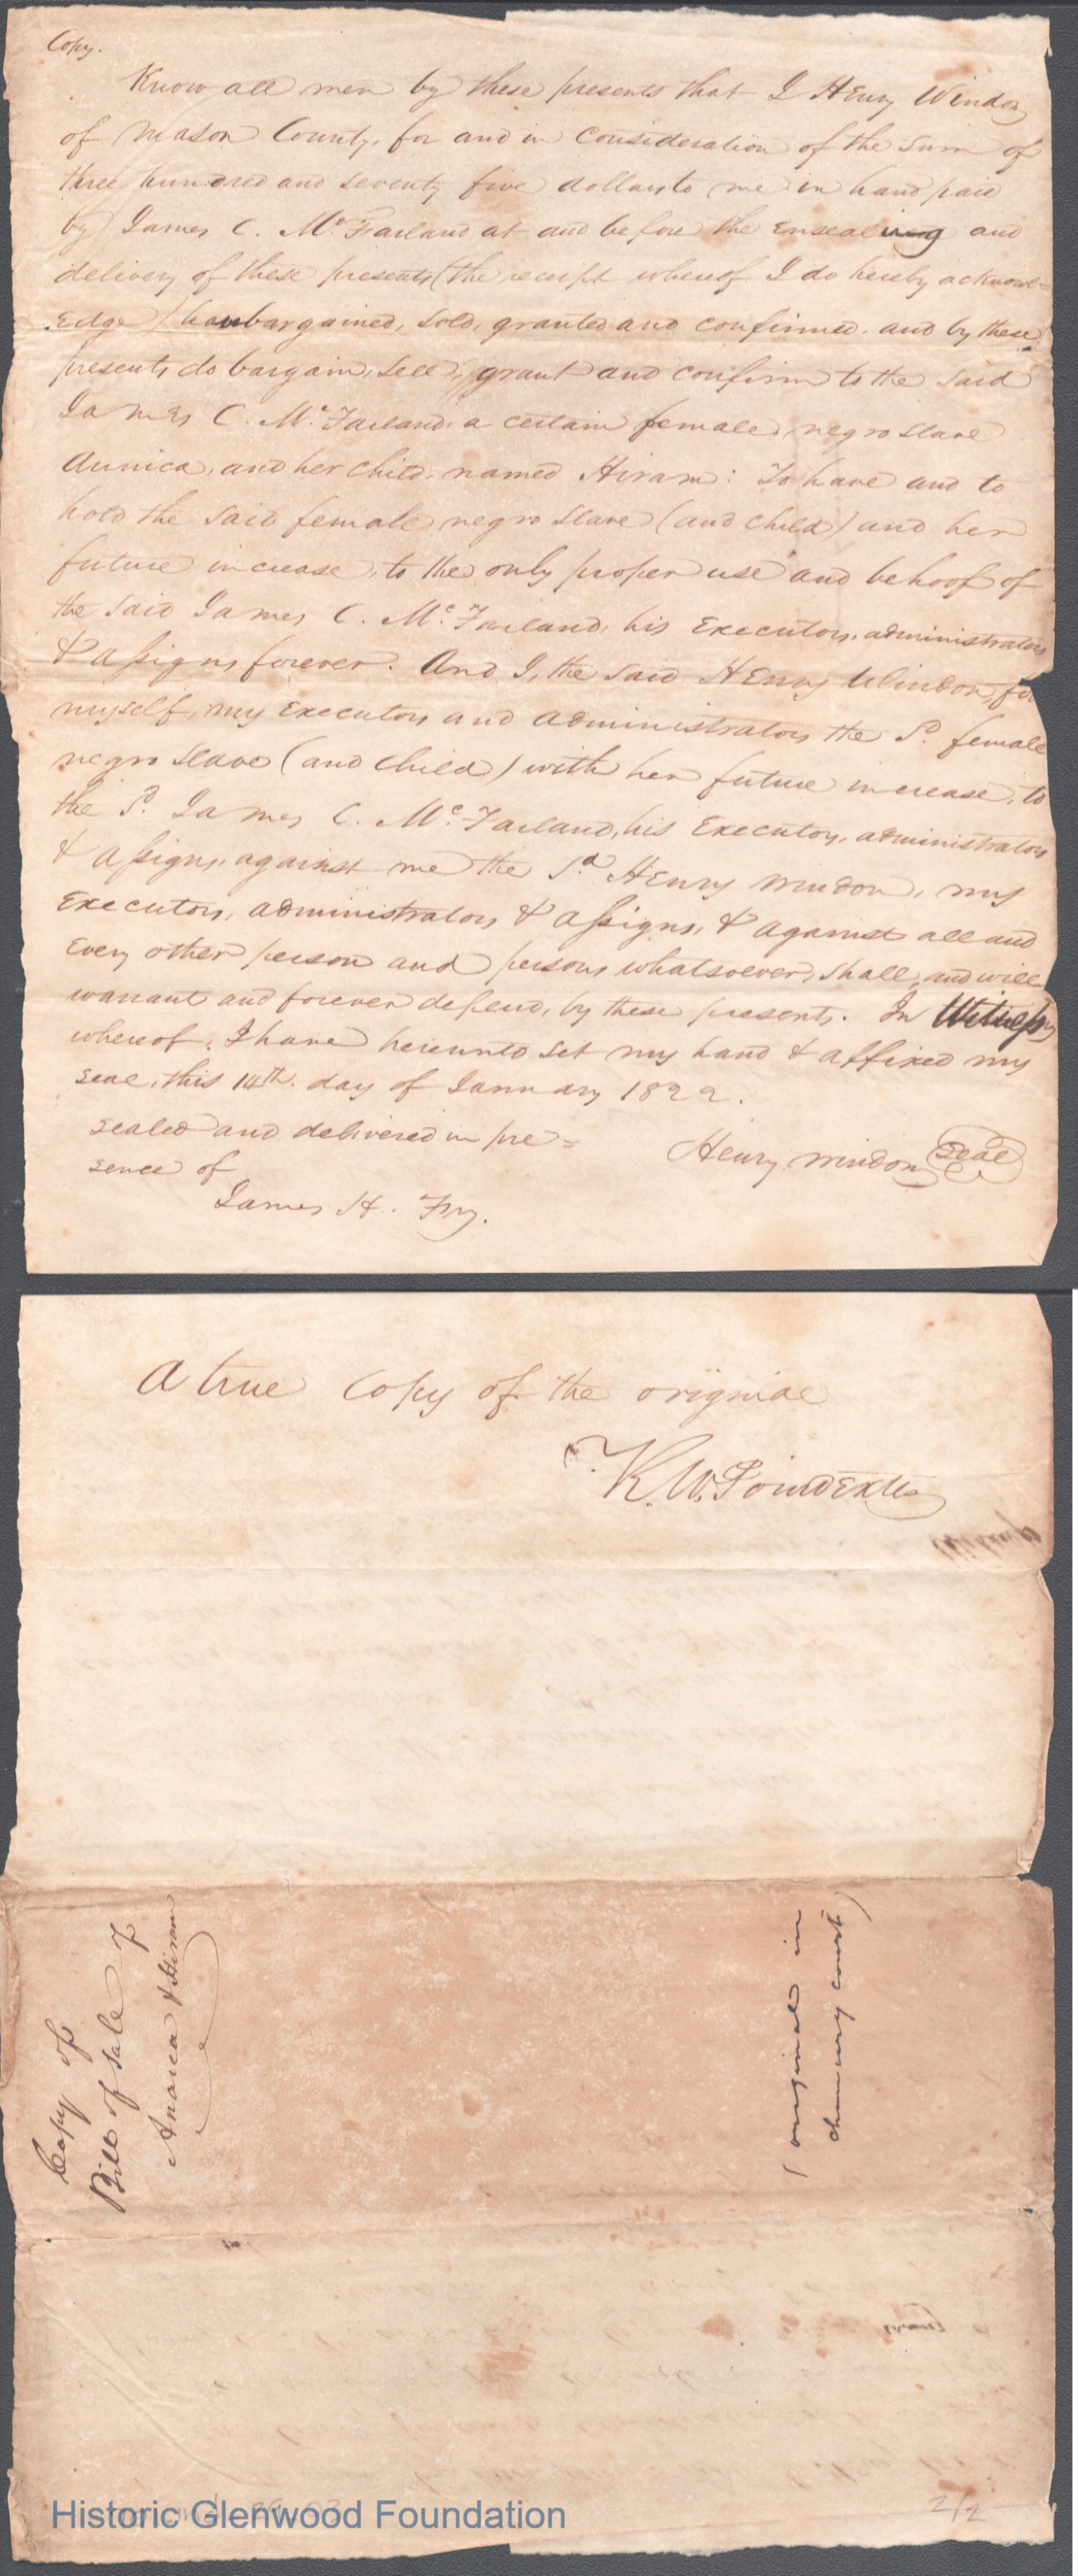 Copy.
Know all men by these presents that I Henry Windon
of Mason County, for and in consideration of the sum of
three hundred and seventy five dollars to me in hand paid
by James C. McFarland at and before the ensealing and
delivery of these presents (the receipt whereof I do hereby acknowl=
edge) have bargained, sold, granted and confirmed, and by these
presents do bargain, sell, grant and confirm to the said
James C. McFarland, a certain female negro slave
Annica, and her child, named Hiram: To have and to
hold the said female negro slave (and child) and her
future increase, to the only proper use and behoof of
the said James C. McFarland, his Executors, administrators
& assigns forever. And I, the said Henry Windon, for
myself, my Executors and administrators the Sd. female
negro slave (and child) with her future increase, to
the Sd. James C. McFarland, his Executors, administrators
& assigns, against me the Sd. Henry Windon, my
Executors, administrators & assigns, & against all and
every other person and persons whatsoever, shall, and will
warrant and forever defend, by these presents. In Witness
whereof, I have hereunto set my hand & affixed my
seal, this 14th. day of January 1822.
sealed and delivered in pre=
sence of
Henry Windon Seal
James H. Fry.
A true Copy of the original
K. W. Poindexter
Copy of
Bill of Sale of
Anaca & Hiram
(original in
chancery court)
Historic Glenwood Foundation
2/2